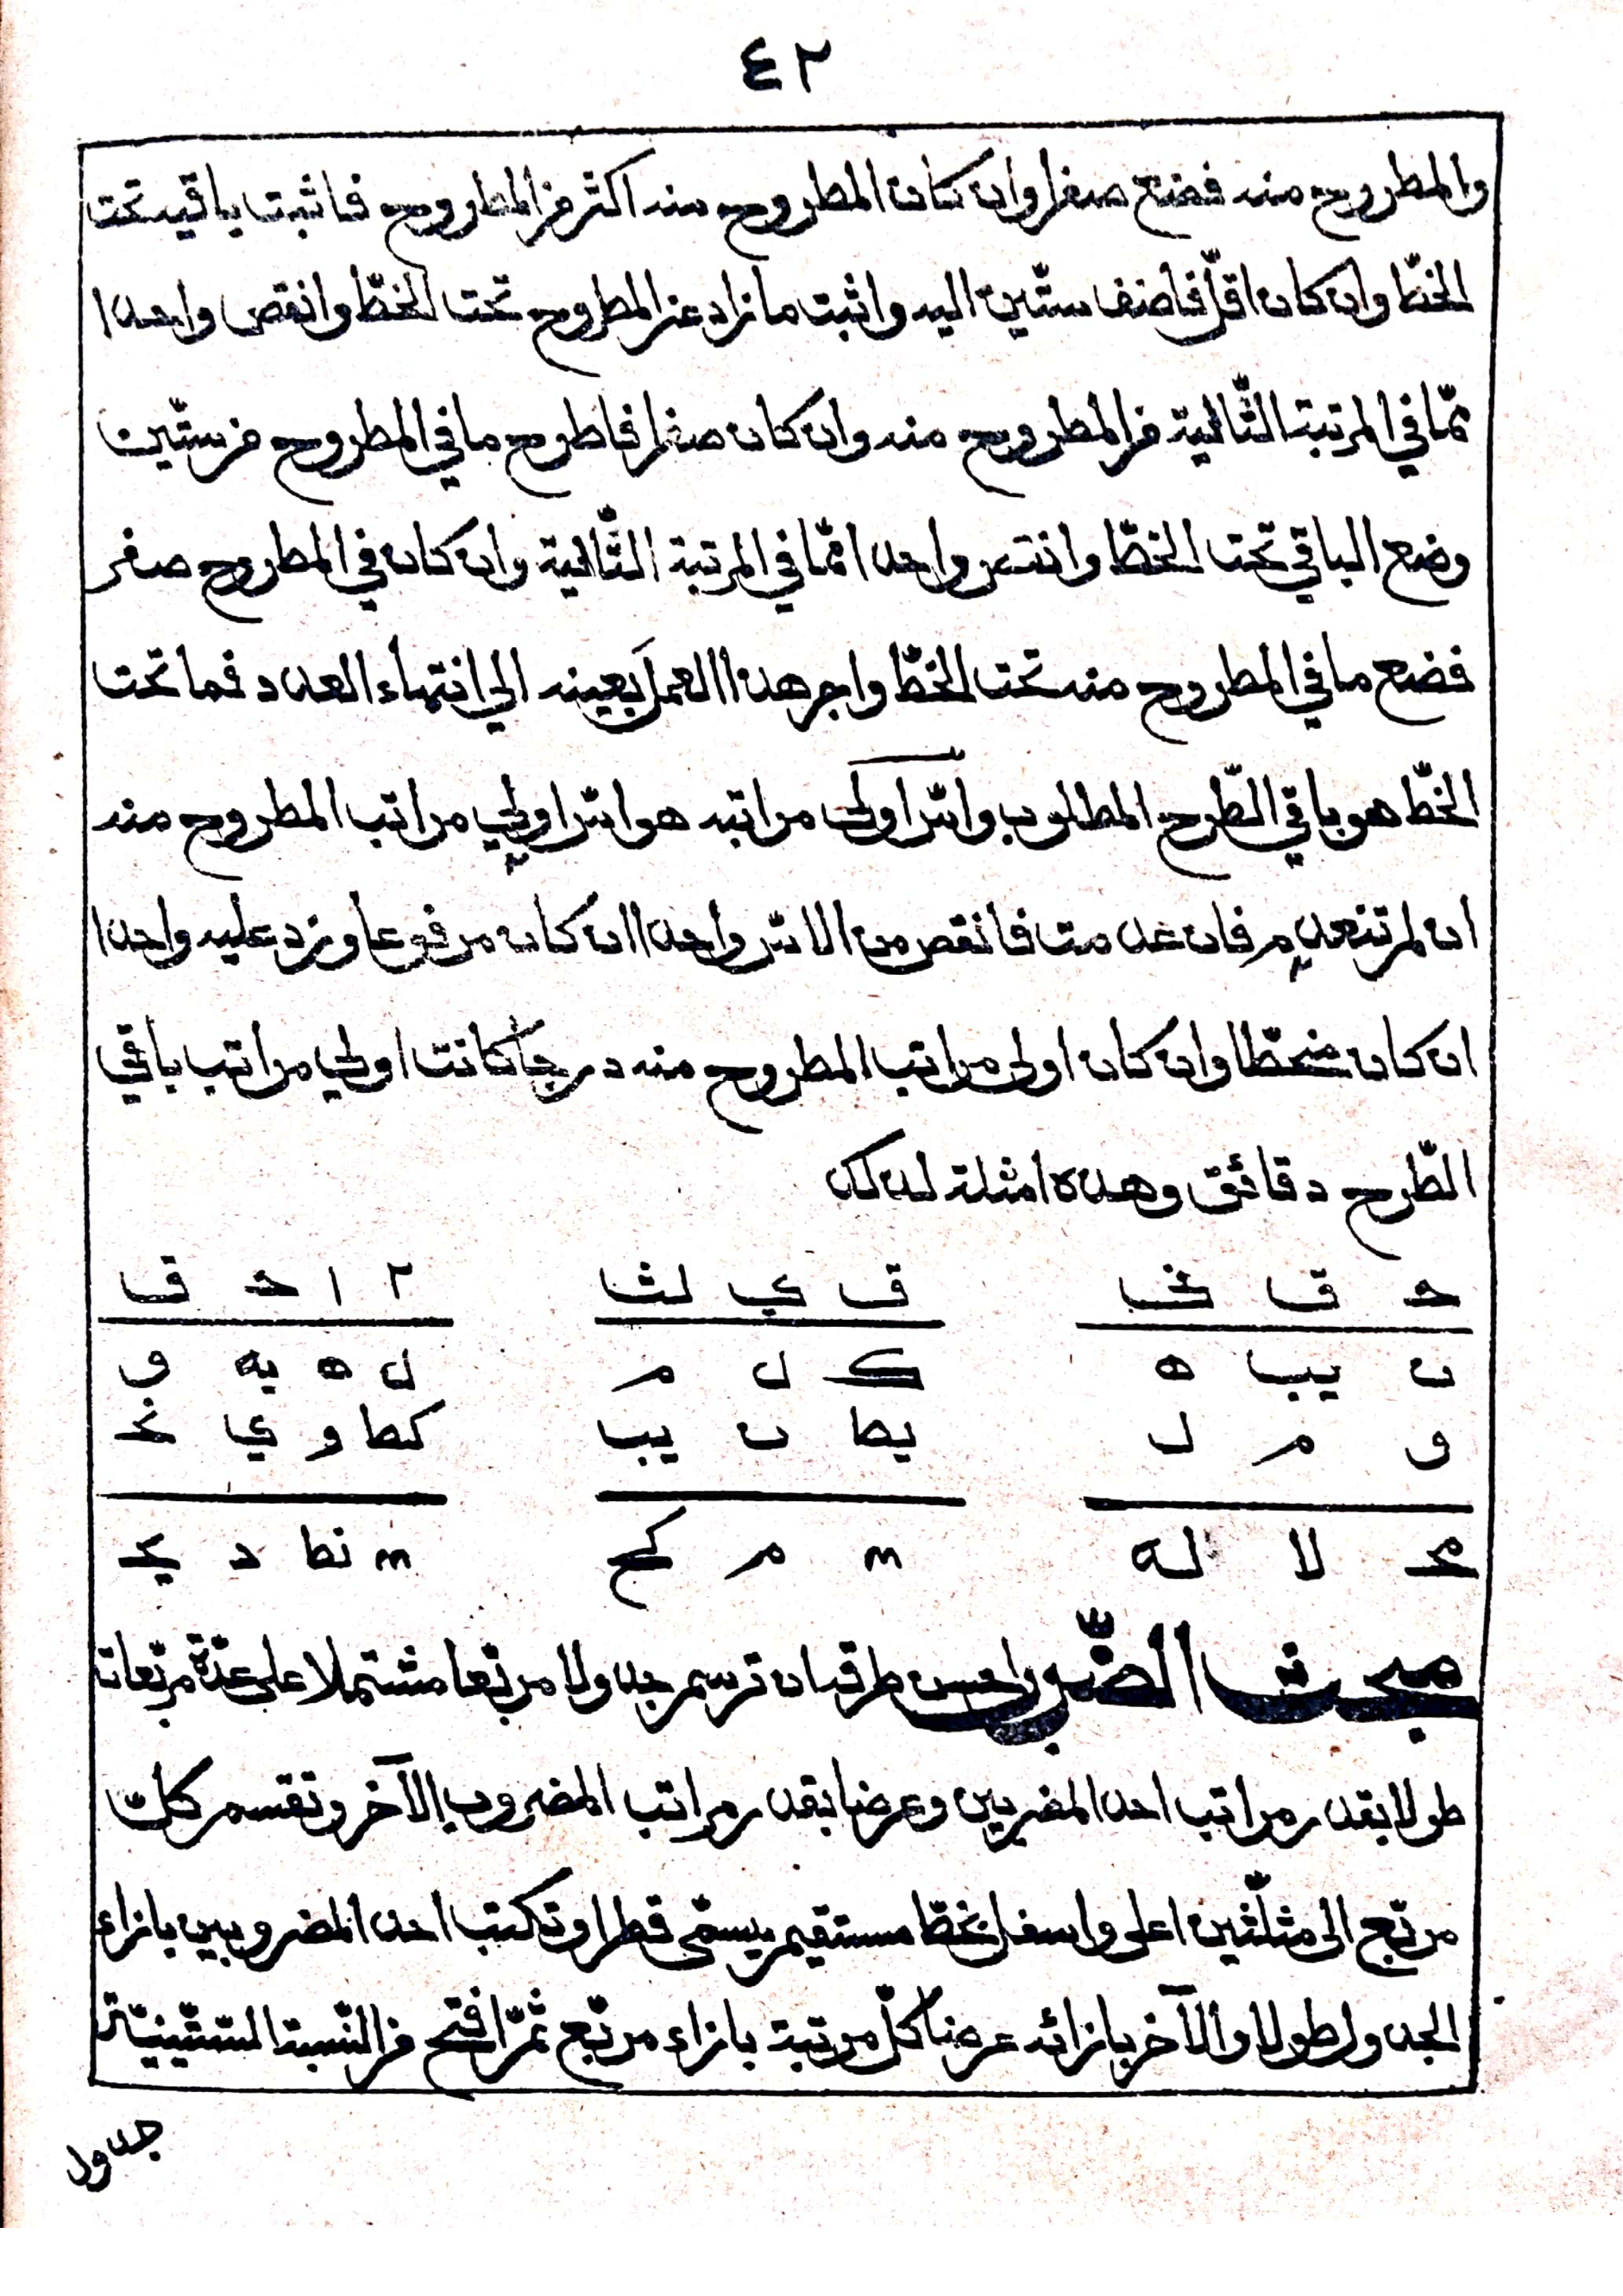 ٤٢
والمطروح منه فضع صفرا وان كان المطروح منه اكثر من المطروح فاثبت باقيه تحت
الخطّ وان كان اقلّ فاضف ستّين اليه واثبت ما زاد عن المطروح تحت الخطّ وانقص واحدا
ممّا في المرتبة التّالية من المطروح منه وان كان صفرا فاطرح ما في المطروح من ستّين
وضع الباقي تحت الخطّ وانتص واحدا ممّا في المرتبة التّالية وان كان في المطروح صفر
فضع ما في المطروح منه تحت الخطّ واجر هذا العمل بعينه الي انتهاء العدد فما تحت
الخطّ هو باقي الطّرح المطلوب واسّ اولى مراتبه هو اسّ اولي مراتب المطروح منه
ان لم تنعدم فان عدمت فانقص من الاسّ واحدا ان كان مرفوعا وزد عليه واحدا
ان كان منحطّا وان كان اولى مراتب المطروح منه درجا كانت اولي مراتب باقي
الطّرح دقائق وهذه امثلة لذلك
حـ ق نيا ق ي لثا ٢ ١ حـ ق
ن يب ه ك ل م ل ه يه و
و م ل يط ن يب كط و ي نحـ
محـ لا له م كح نط د يحـ
مبحث الضّرب واحسن طرقه ان ترسم جدولا مربّعا مشتملا على عدّة مربّعات
طولا بقدر مراتب احد المضربين وعرضا بقدر مراتب المضروب الآخر وتقسم كلّ
مربّع الى مثلّثين اعلى واسفل بخطّ مستقيم يسمّى قطرا وتكتب احد المضروبين بازاء
الجدول طولا والآخر بازائه عرضا كلّ مرتبة بازاء مربّع ثمّ افتح من النّسبة الستّينيّة
جدول